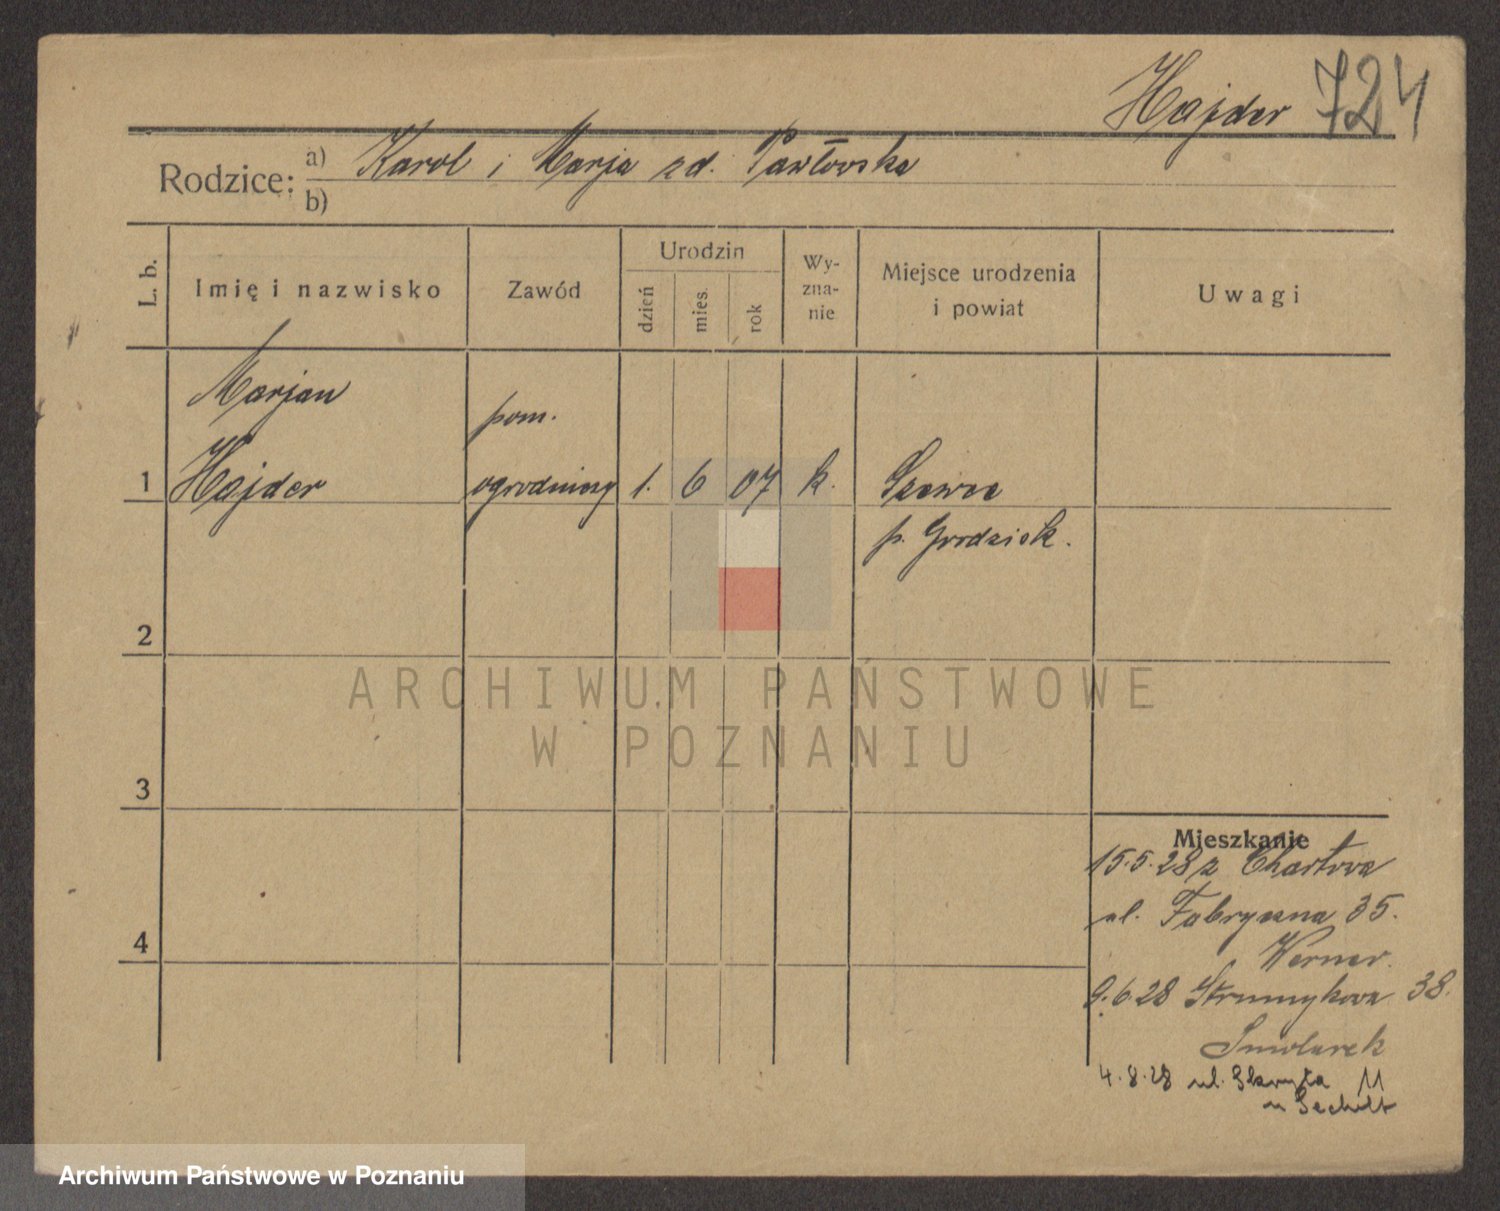 Hajder 724
Rodzice: a) Karol i Marja zd. Pawłowska
b)
L. b. Imię i nazwisko Zawód Urodzin dzień mies. rok Wy-zna-nie Miejsce urodzenia i powiat Uwagi
Marjan pom.
1 Hajder ogrodniczy 1. 6 07 k. Szewce
p. Grodzisk.
2
ARCHIWUM PAŃSTWOWE
W POZNANIU
3
Mieszkanie
15.5.28 z Chartowa
4 ul. Fabryczna 35.
Werner.
9.6.28 Strumykowa 38.
Smolarek
4.8.28 ul. 11
u
Archiwum Państwowe w Poznaniu